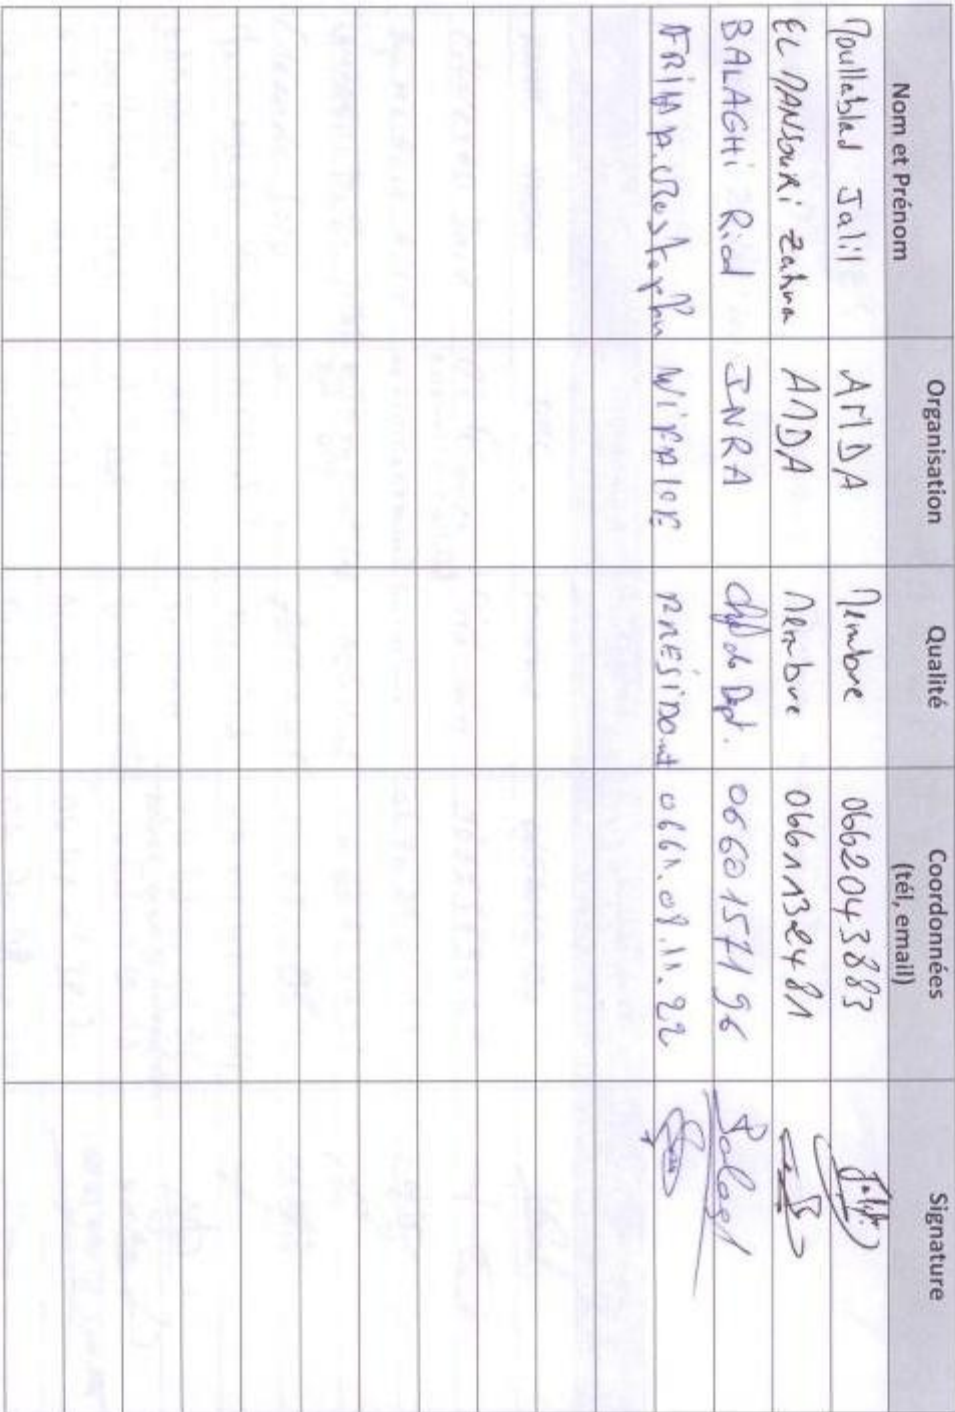 Nom et Prénom Organisation Qualité Coordonnées (tél, email) Signature
Moullablad Jalil AMDA Membre 0662043883
EL MANSOURI Zahra AMDA Membre 0661132481
BALAGHi Riad INRA chef de Dept. 0660157196
AFRiMA Mostapha PRESiDent 0661.08.11.22